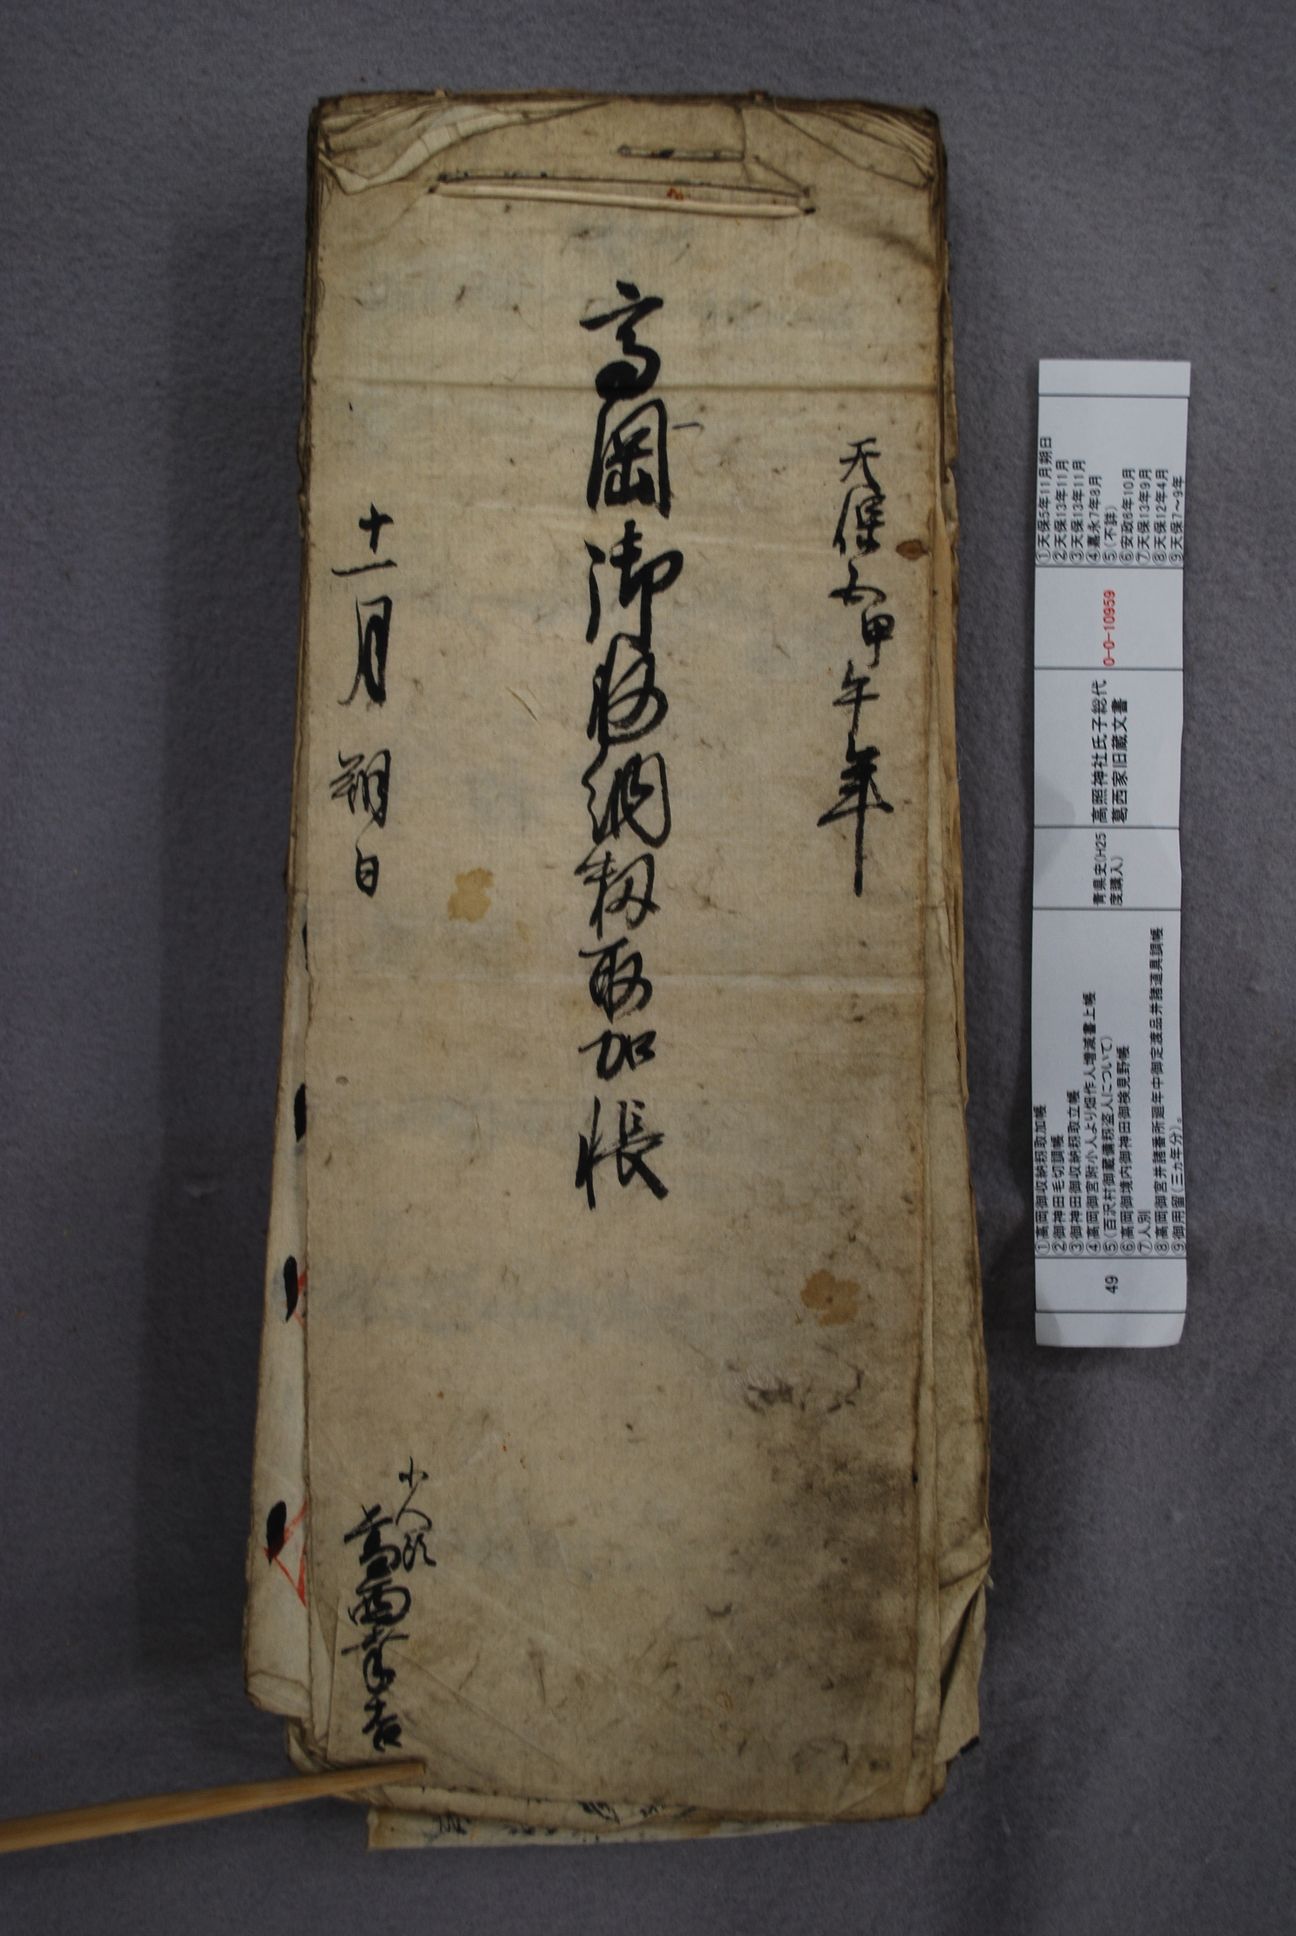 天保五甲午年
高岡御収納籾取加帳
十一月朔日
小人頭
葛西幸吉
①天保5年11月朔日
②天保13年11月
③天保13年11月
④嘉永7年8月
⑤(不詳)
⑥安政6年10月
⑦天保13年9月
⑧天保12年4月
⑨天保7～9年
0-0-10959
高照神社氏子総代
葛西家旧蔵文書
青県史(H25
度購入)
①高岡御収納籾取加帳
②御神田毛切調帳
③御神田御収納籾取立帳
④高岡御宮附小人より畑作人増減書上帳
⑤(百沢村御蔵備籾盗人について)
⑥高岡御境内御神田御検見野帳
⑦人別
⑧高岡御宮并諸番所廻年中御定渡品并諸道具調帳
⑨御用留(三ヵ年分)。
49